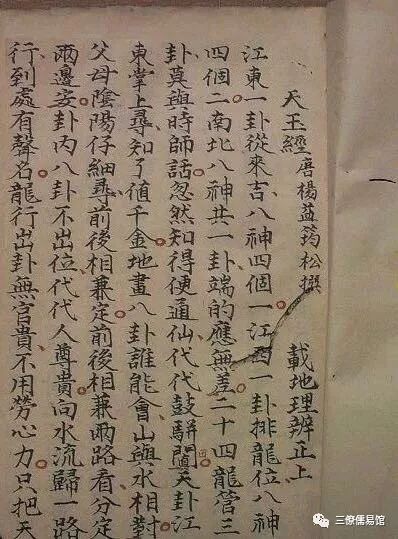 天玉經唐楊益筠松撰 載地理辨正上
江東一卦從來吉八神四個一江西一卦排龍位八神
四個二南北八神共一卦端的應無差二十四龍管三
卦莫與時師話忽然知得便通仙代代鼓駢闐天卦江
東掌上尋知了值千金地畫八卦誰能會山與水相對
父母陰陽仔細尋前後相兼定前後相兼兩路看分定
兩邊安卦内八卦不出位代代人尊貴向水流歸一路
行到處有聲名龍行出卦無官貴不用勞心力只把天
三僚儒易馆